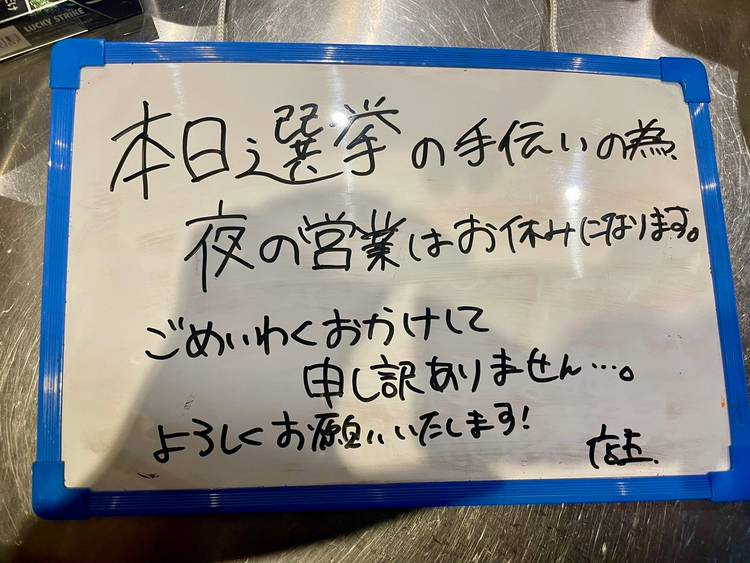 LUCKY STRIKE
本日選挙の手伝いの為、
夜の営業はお休みになります。
ごめいわくおかけして
申し訳ありません…。
よろしくお願いいたします!
店主.